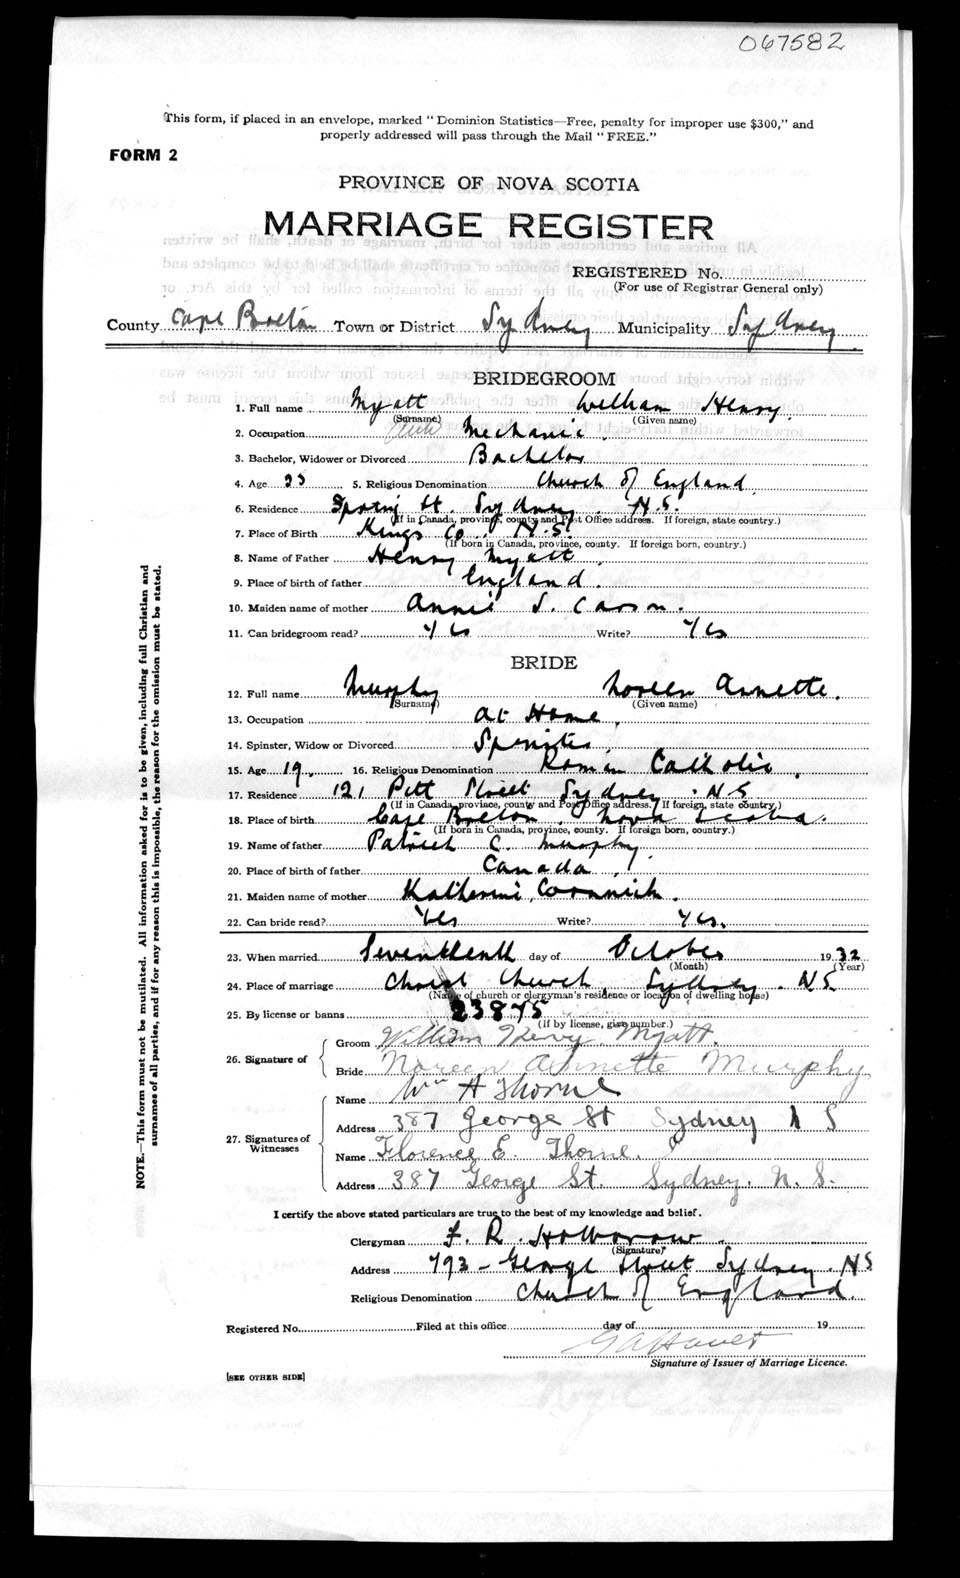 067582
This form, if placed in an envelope, marked "Dominion Statistics—Free, penalty for improper use $300," and
properly addressed will pass through the Mail "FREE."
FORM 2
PROVINCE OF NOVA SCOTIA
MARRIAGE REGISTER
REGISTERED No.
(For use of Registrar General only)
County Cape Breton Town or District Sydney Municipality Sydney
BRIDEGROOM
1. Full name Myatt William Henry.
(Surname) (Given name)
2. Occupation Mechanic.
3. Bachelor, Widower or Divorced Bachelor
4. Age 25 5. Religious Denomination Church of England
6. Residence St. Sydney. N.S.
(If in Canada, province, county and Post Office address. If foreign, state country.)
7. Place of Birth Kings Co. N.S.
(If born in Canada, province, county. If foreign born, country.)
8. Name of Father Henry Myatt
9. Place of birth of father England.
10. Maiden name of mother Annie S.
11. Can bridegroom read? Yes Write? Yes
BRIDE
12. Full name Murphy Noreen Annette.
(Surname) (Given name)
13. Occupation At Home,
14. Spinster, Widow or Divorced Spinster
15. Age 19. 16. Religious Denomination Roman Catholic.
17. Residence 121 Pitt Street Sydney. N S
(If in Canada, province, county and Post Office address. If foreign, state country.)
18. Place of birth Cape Breton, Nova Scotia.
(If born in Canada, province, county. If foreign born, country.)
19. Name of father Patrick C. Murphy
20. Place of birth of father Canada
21. Maiden name of mother Katherine Cormick.
22. Can bride read? Yes Write? Yes.
23. When married Seventeenth day of October 1932
(Month) (Year)
24. Place of marriage Christ Church, Sydney. N S
(Name of church or clergyman's residence or location of dwelling house)
25. By license or banns 23875
(If by license, give number.)
26. Signature of
Groom William Henry Myatt.
Bride Noreen Annette Murphy
27. Signatures of Witnesses
Name Wm A Thorne
Address 387 George St Sydney N S
Name Florence E. Thorne.
Address 387 George St. Sydney. N. S.
I certify the above stated particulars are true to the best of my knowledge and belief.
Clergyman F. R. Holborow.
(Signature)
Address 793 - George Street Sydney. N S
Religious Denomination Church of England.
Registered No. Filed at this office day of 19
Signature of Issuer of Marriage Licence.
[SEE OTHER SIDE]
NOTE.—This form must not be mutilated. All information asked for is to be given, including full Christian and
surnames of all parties, and if for any reason this is impossible, the reason for the omission must be stated.